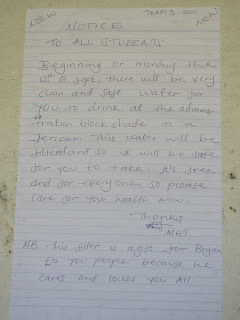 NEW TERM 3 2011 NEW
NOTICE
TO ALL STUDENTS
Beginning on monday the
of sept. there will be very
clean and safe water for
YOU to drink, at the adminis-
tration block shade in a
Jerican. This water will be
filtered and so it will be safe
for you to take. It's free
and for everyone, so please
care for your health now.
Thanks
NB. This filter is a gift from Bryan
to you people because he
cares and loves you All